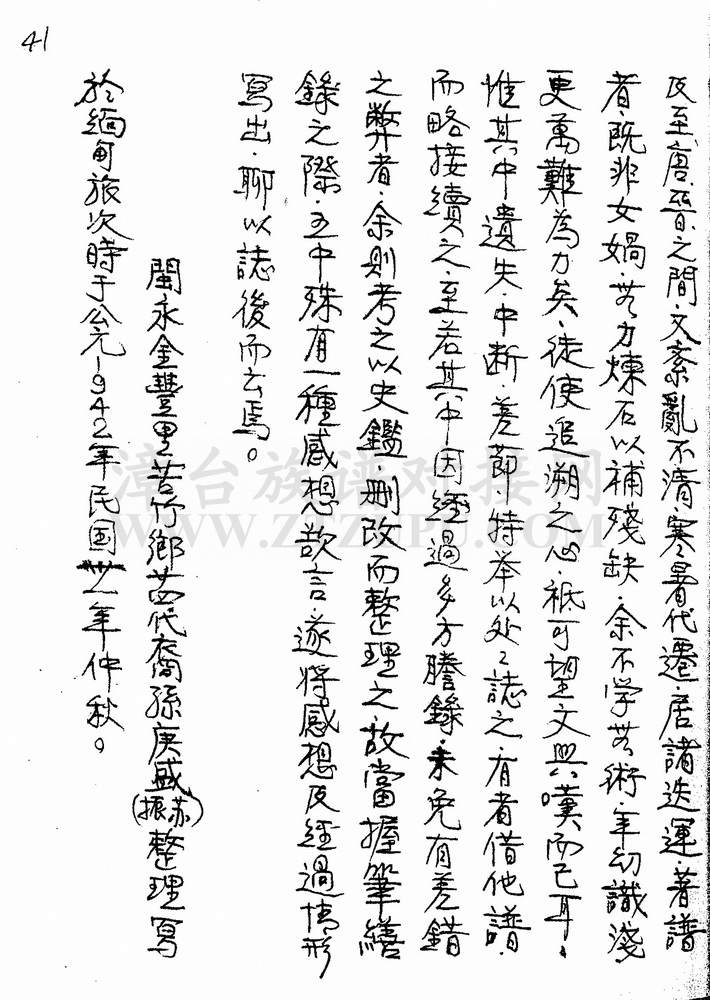 41
及至唐晉之間·文紊亂不清·寒暑代遷·居諸迭運·著譜
者·既非女媧·无力煉石以補殘缺·余不学无術·年幼識淺
更萬難為力矣·徒使追溯之心·祗可望文興嘆而已耳·
惟其中遺失·中断·差節·特举以处之誌之·有者借他譜·
而略接續之·至若其中因經過多方謄錄·未免有差錯
之弊者·余則考之以史鑑·刪改而整理之·故當握筆繕
錄之際·五中殊有一種感想欲言·遂将感想及經過情形
寫出·聊以誌後而云焉。
閩永金豐里苦竹鄉廿四代裔孫庚盛(振苏)整理寫
於緬甸旅次時于公元1942年民国卅一年仲秋。
漳台族谱对接网
WWW.ZTZUPU.COM